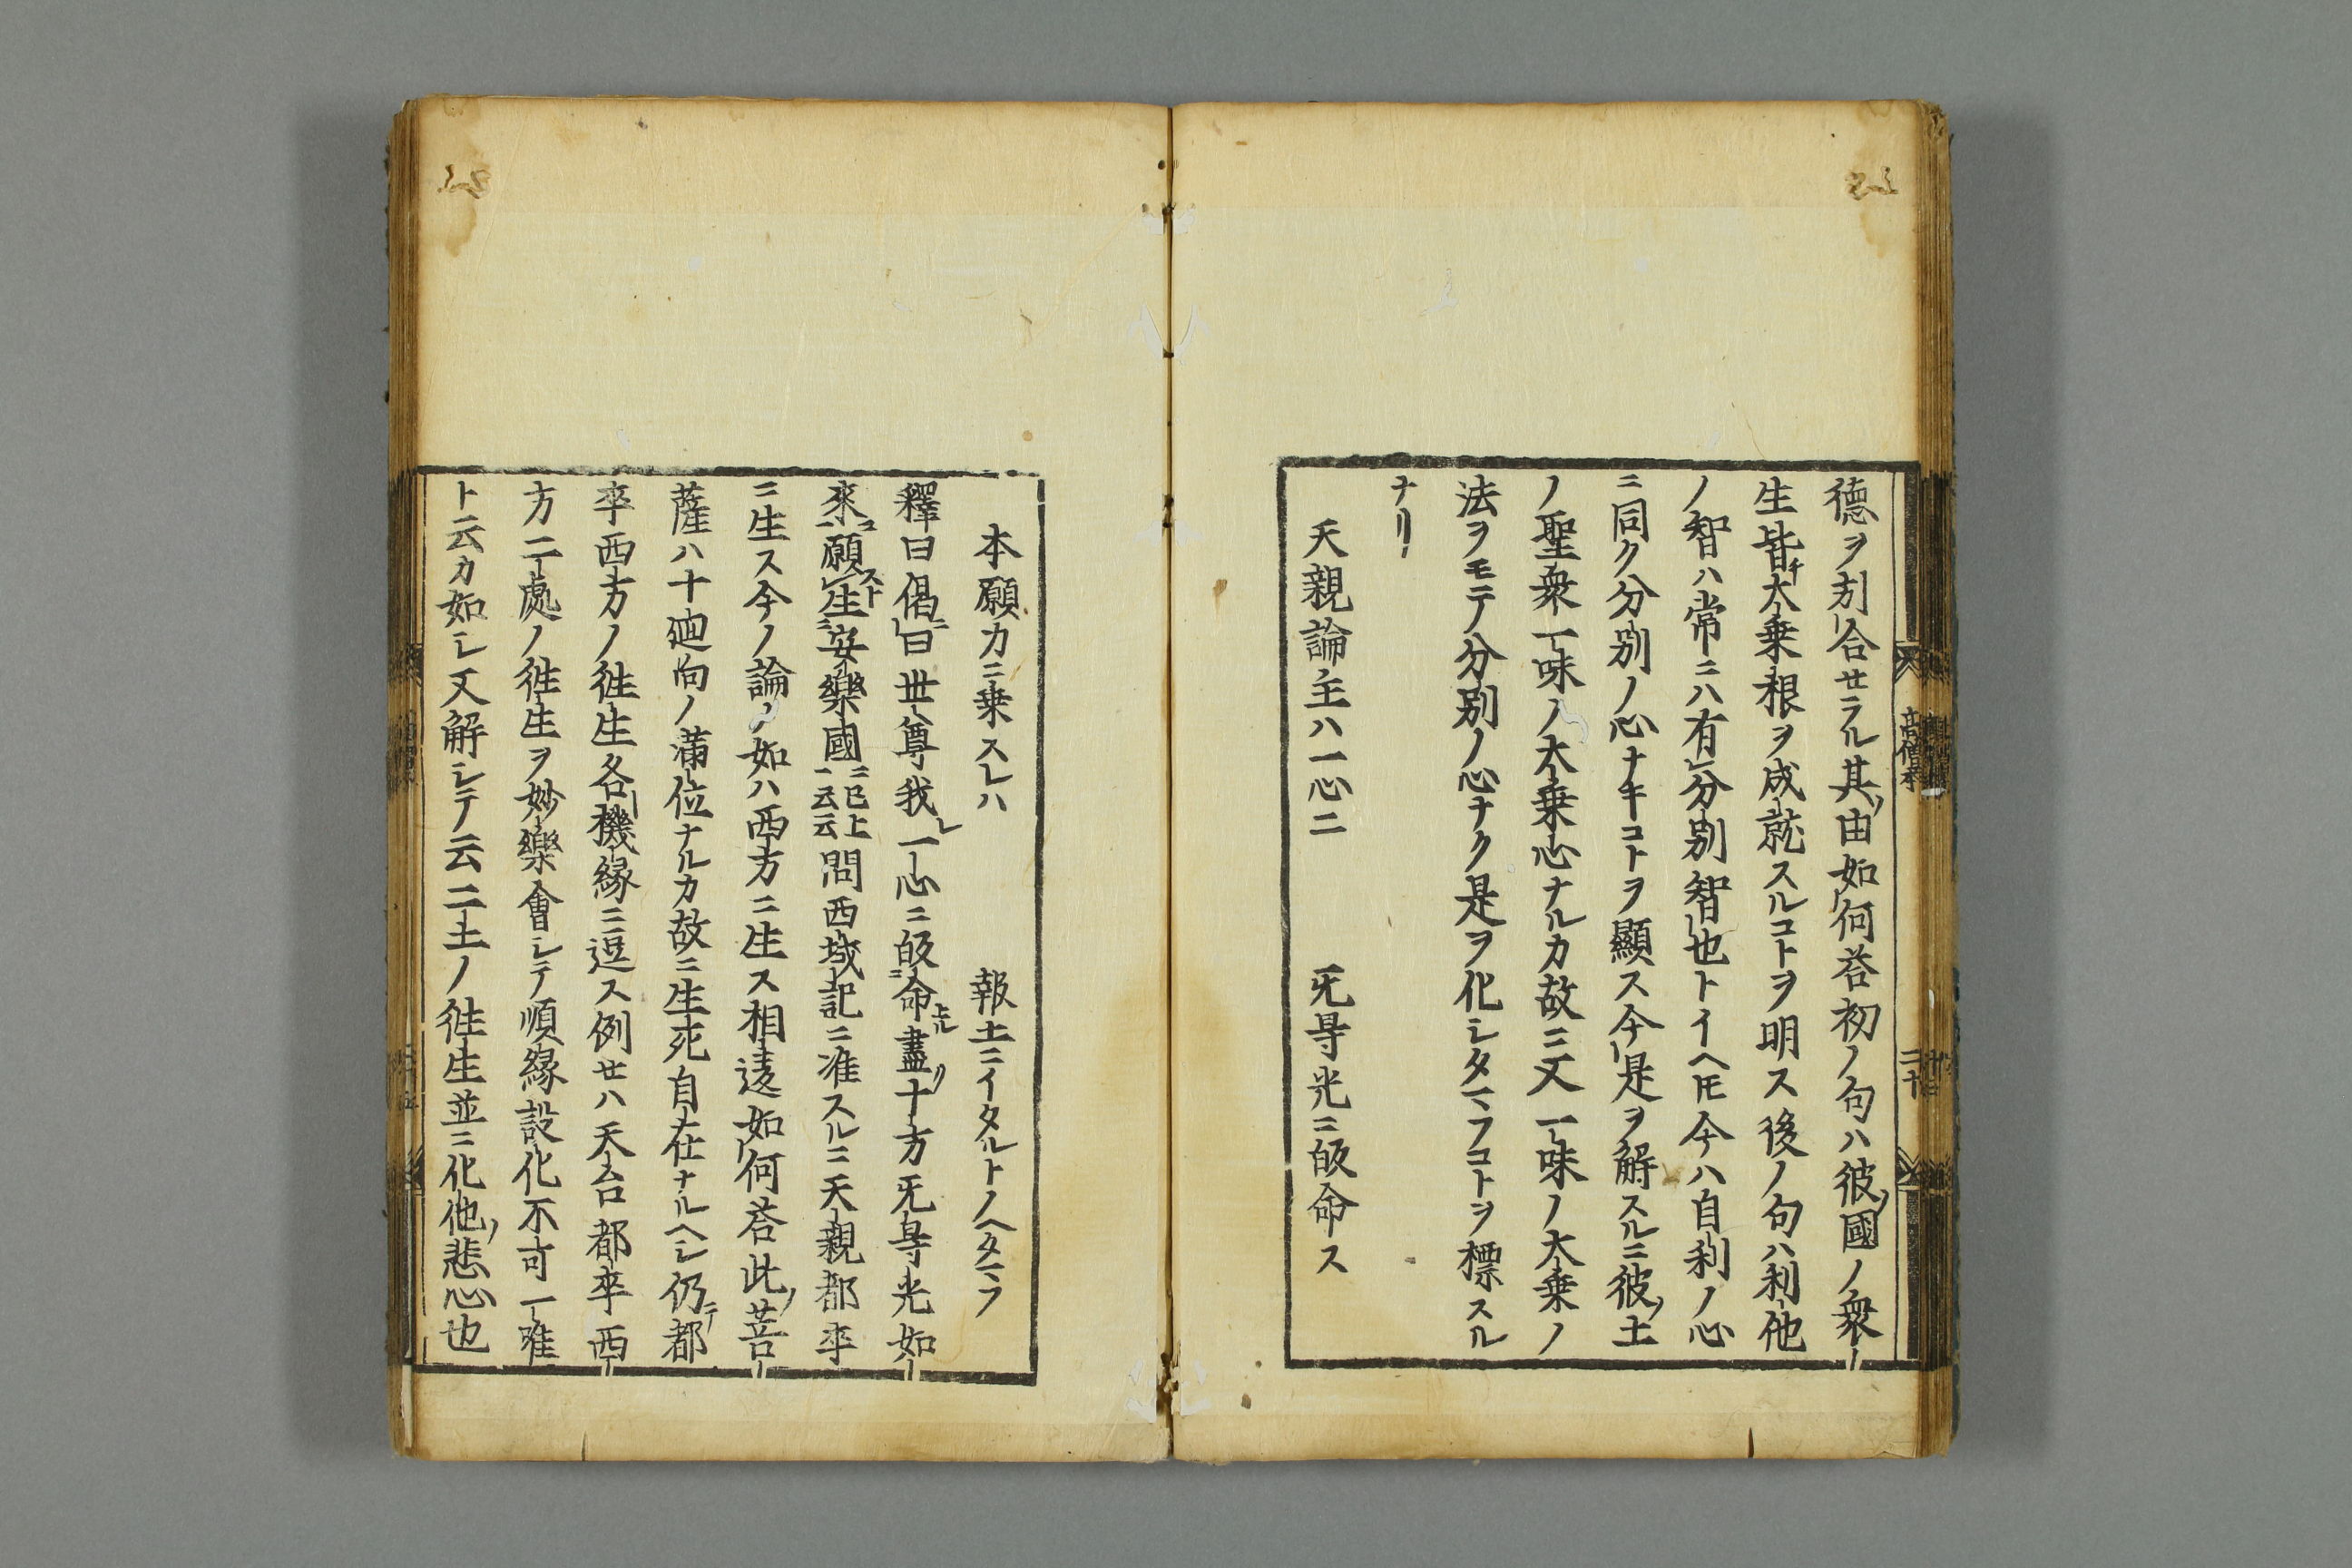 德ヲ刋合セラル其ノ由如何荅初ノ句ハ彼ノ國ノ衆
生皆チ大乗根ヲ成就スルコトヲ明ス後ノ句ハ利他
ノ智ハ常ニハ有分別智也トイヘ𪜈今ハ自利ノ心
ニ同ク分別ノ心ナキコトヲ顯ス今是ヲ解スルニ彼ノ土
ノ聖衆一味ノ大乗心ナルカ故ニ又一味ノ大乗ノ
法ヲモテ分別ノ心ナク是ヲ化シタマフコトヲ標スル
ナリ
天親論主ハ一心ニ 旡㝵光ニ皈命ス
本願力ニ乗スレハ 報土ニイタルトノヘタマフ
釋曰偈ニ曰世尊我レ一心ニ皈命上ル盡ノ十方旡㝵光如
來ニ願スト生安樂國ニ已上云云問西域記ニ准スルニ天親都率
ニ生ス今ノ論ノ如ハ西方ニ生ス相違如何荅此ノ菩
薩ハ十𢌞向ノ滿位ナルカ故ニ生死自在ナルヘシ仍テ都
率西方ノ徃生各機縁ニ逗ス例セハ天台都率西
方二處ノ徃生ヲ妙樂會シテ順縁設化不可一唯
ト云カ如シ又解シテ云二土ノ徃生並ニ化他ノ悲心也
高僧本
二十